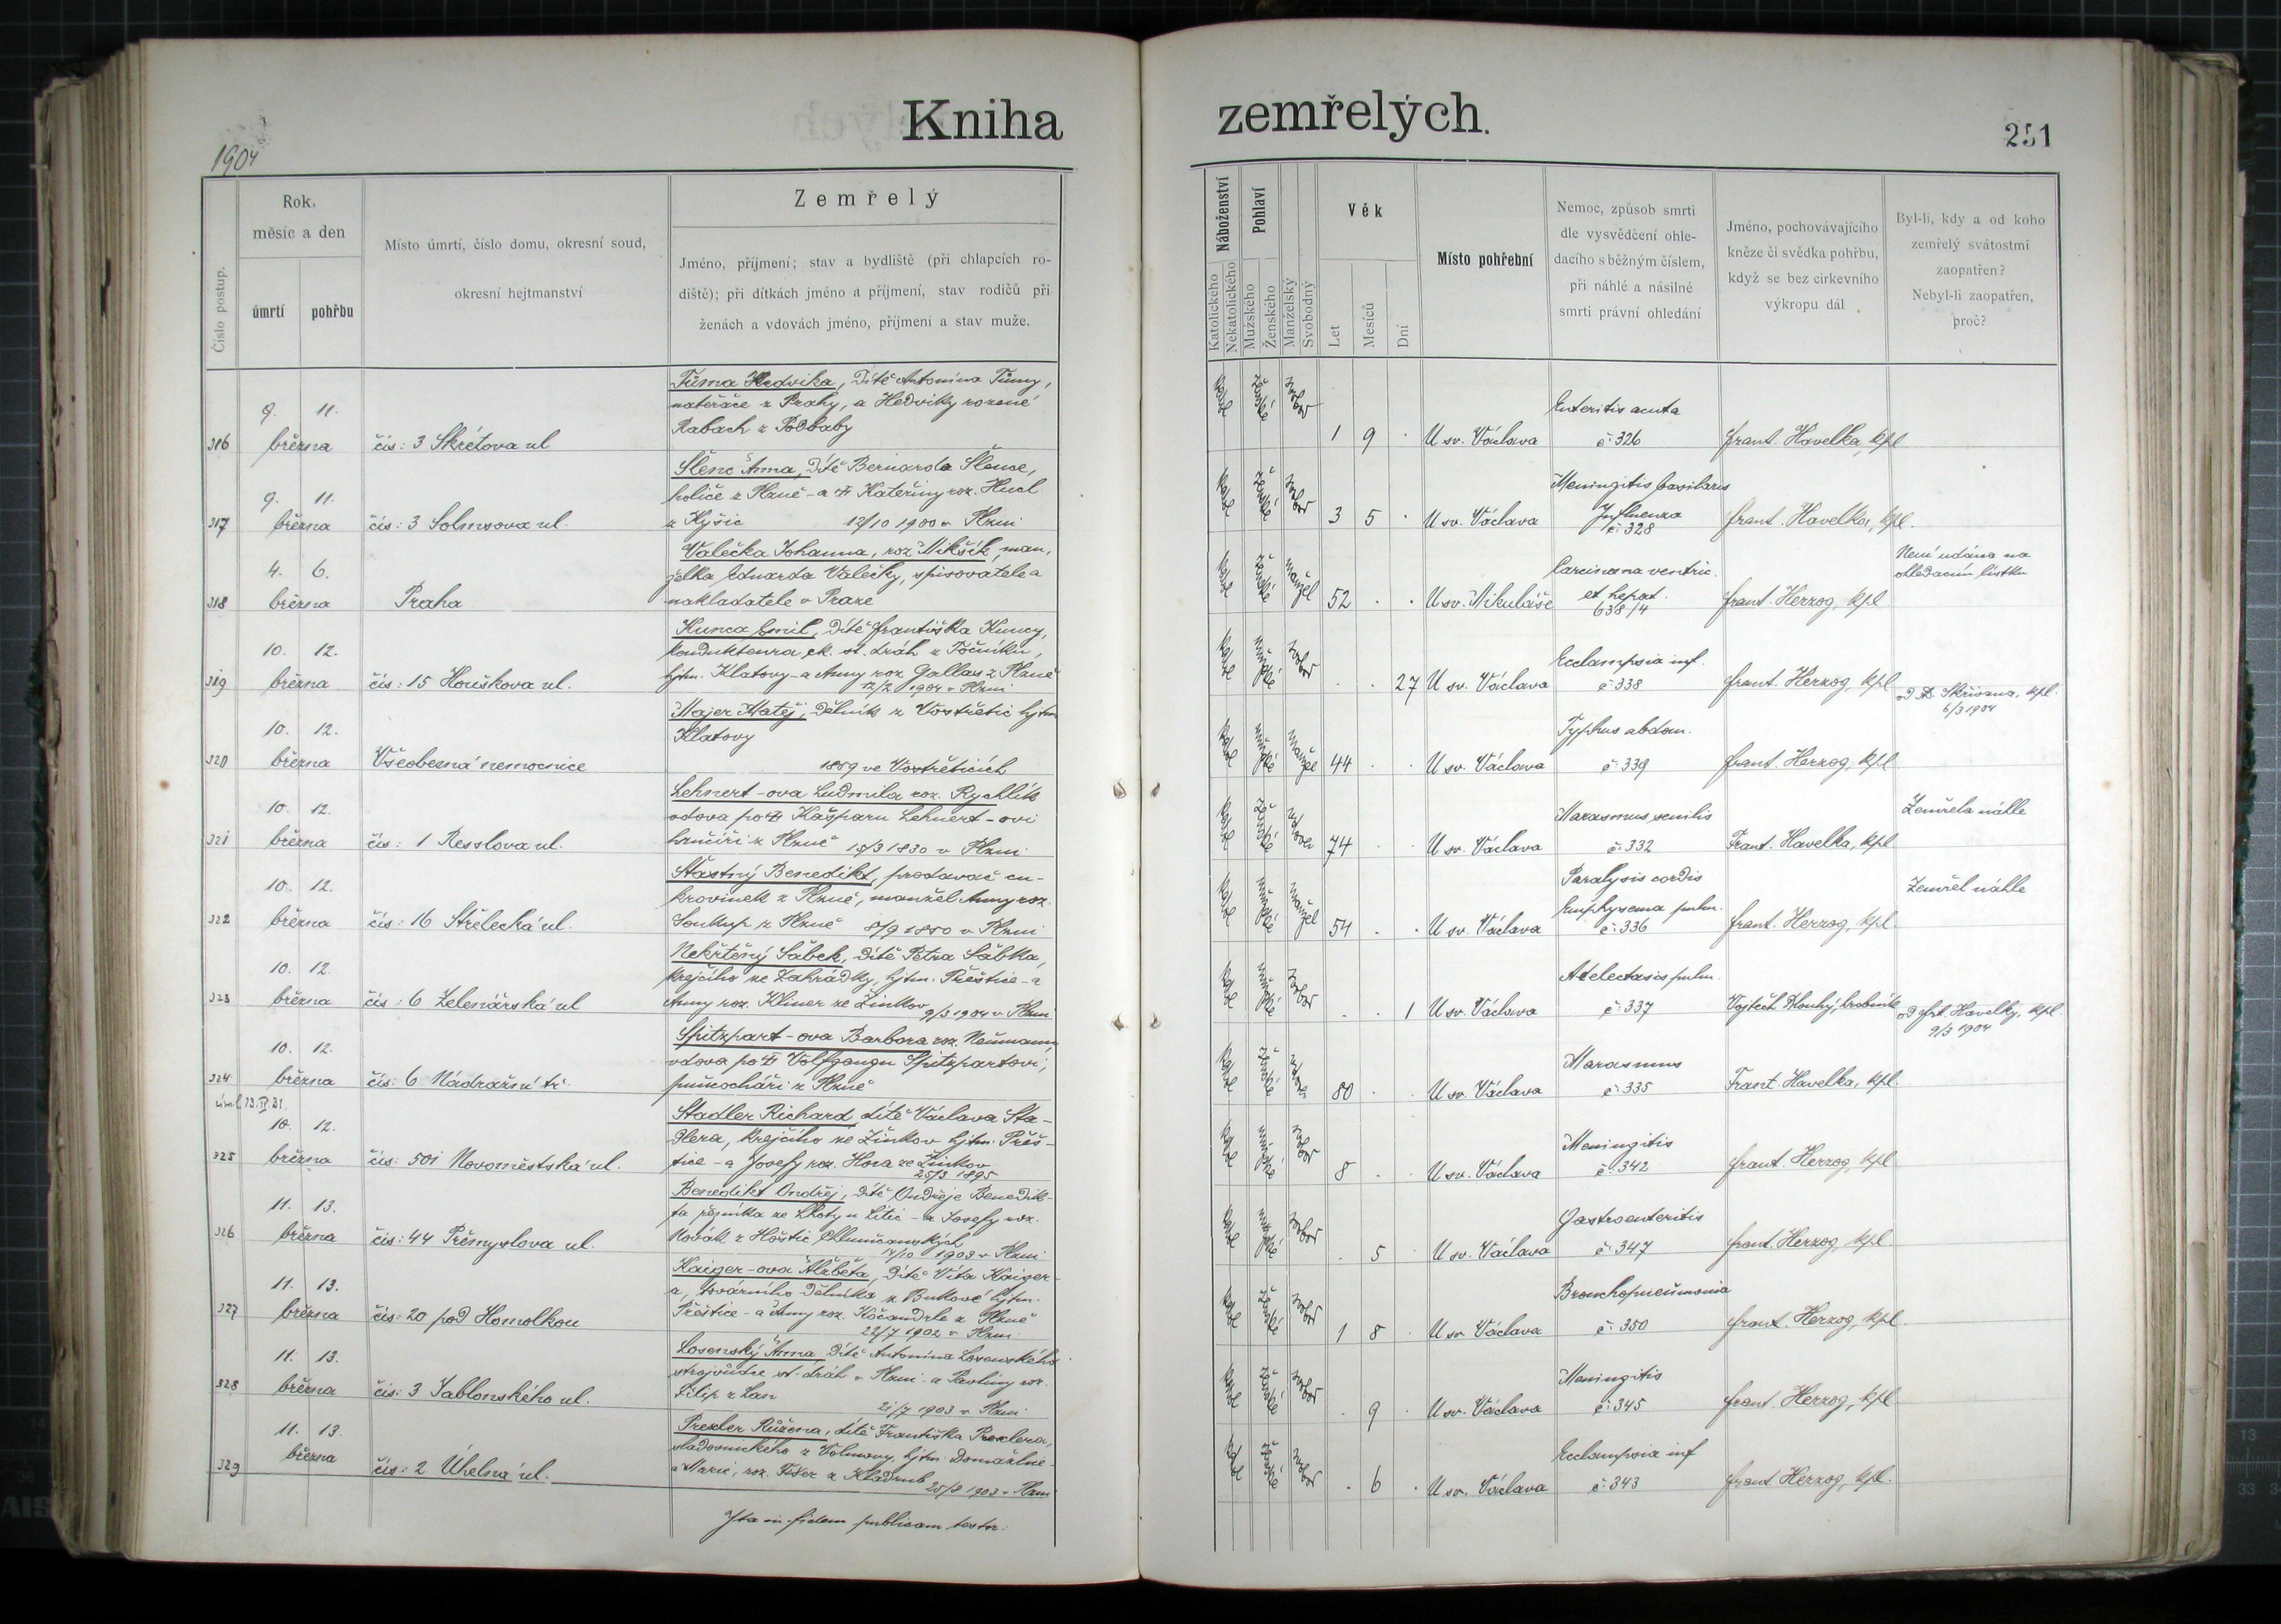 Kniha
1904
Číslo postup.
Rok,
měsíc a den
úmrtí
pohřbu
Místo úmrtí, číslo domu, okresní soud,
okresní hejtmanství
Zemřelý
Jméno, příjmení; stav a bydliště (při chlapcích ro-
diště); při dítkách jméno a příjmení, stav rodičů při
ženách a vdovách jméno, příjmení a stav muže.
316
9. 11.
března
čís: 3 Skrétova ul
Tůma Hedvika, dítě Antonína Tůmy,
natěrače z Prahy, a Hedviky rozené
Rabach z Podbaby
317
9. 11.
března
čís: 3 Solmsova ul.
Šlenc Anna, dítě Bernarda Šlence,
holiče z Plzně - a Kateřiny roz. Hucl
z Kyšic 12/10 1900 v Plzni
318
4. 6.
března
Praha
Valečka Johanna, roz Mikšík, man-
želka Eduarda Valečky, spisovatele a
nakladatele v Praze
319
10. 12.
března
čís: 15 Houškova ul.
Kunca Emil, dítě Františka Kuncy,
kondukteura ck. st. drah z Počínku,
hjtm. Klatovy - a Anny roz Gallas z Plzně
12/2 1904 v Plzni
320
10. 12.
března
Všeobecná nemocnice
Majer Matěj, dělník z Vostřetic hjtm
Klatovy
1859 ve Vostřeticích
321
10. 12.
března
čís: 1 Resslova ul.
Lehnert-ova Ludmila roz. Rychlík
vdova po Kašparu Lehnert-ovi
hrnčíři z Plzně 18/3 1830 v Plzni
322
10. 12.
března
čís: 16 Střelecká ul.
Šťastný Benedikt, prodavač cu-
krovinek z Plzně, manžel Anny roz.
Soukup z Plzně 8/9 1850 v Plzni
323
10. 12.
března
čís: 6 Zelenářská ul
Nekřtěný Sabek, dítě Petra Sabka,
krejčího ze Zahrádky, hjtm. Přeštice - a
Anny roz. Klimer ze Žinkov 9/3 1904 v Plzni
324
10. 12.
března
čís: 6 Nádražní tř.
Spitzpart-ova Barbora roz. Neumann,
vdova po Volfgangu Spitzpartovi,
punčocháři z Plzně
325
10. 12.
března
čís: 501 Novoměstská ul.
Stadler Richard, dítě Václava Sta-
dlera, krejčího ze Žinkov hjtm. Přeš-
tice - a Josefy roz. Hora ze Žinkov
25/3 1895
326
11. 13.
března
čís: 44 Přemyslova ul.
Benedikt Ondřej, dítě Ondřeje Benedik-
ta ze Lhoty u Litic - a Josefy roz.
Novák z Hoštic Chlumčanských
14/10 1903 v Plzni
327
11. 13.
března
čís: 20 pod Homolkou
Kaiger-ova Alžběta, dítě Víta Kaiger-
a, továrního dělníka z Bukové hjtm.
Přeštice - a Anny roz. Kočandrle z Plzně
22/7 1902 v Plzni
328
11. 13.
března
čís: 3 Jablonského ul.
Losenský Anna, dítě Antonína Losenského
strojvůdce st. drah v Plzni - a Pavliny roz.
Filip z Lan
21/7 1903 v Plzni
329
11. 13.
března
čís: 2 Úhelná ul.
Prexler Růžena, dítě Františka Prexlera,
sladovnického z Volmavy, hjtm. Domažlice -
a Marie, roz. Fišer z Kladrub
25/8 1903 v Plzni
Ita in fidem publicam testor:
zemřelých.
251
Náboženství
Katolického
Nekatolického
Pohlaví
Mužského
Ženského
Manželský
Svobodný
Věk
Let
Mesíců
Dní
Místo pohřební
Nemoc, způsob smrti
dle vysvědčení ohle-
dacího s běžným číslem,
při náhlé a násilné
smrti právní ohledání
Jméno, pochovávajícího
kněze či svědka pohřbu,
když se bez církevního
výkropu dál
Byl-li, kdy a od koho
zemřelý svátostmi
zaopatřen?
Nebyl-li zaopatřen,
proč?
1 9 . U sv. Václava
Enteritis acuta
č: 326
Frant. Havelka, kpl
3 5 . U sv. Václava
Meningitis basilaris
Influenza
č: 328
Frant. Havelka, kpl.
52 . . U sv. Mikuláše
Carcinoma ventric.
et hepat.
638/4
Frant. Herzog, kpl
Není udáno na
ohledacím lístku
. . 27 U sv. Václava
Ecclampsia inf.
č: 338
Frant. Herzog, kpl
44 . . U sv. Václava
Typhus abdom.
č: 339
Frant. Herzog, kpl
od Skřivana, kpl.
6/3 1904
74 . . U sv. Václava
Marasmus senilis
č: 332
Frant. Havelka, kpl
Zemřela náhle
54 . . U sv. Václava
Paralysis cordis
Emphysema pulm.
č: 336
Frant. Herzog, kpl.
Zemřel náhle
. . 1 U sv. Václava
Atelectasis pulm.
č: 337
Vojtěch Dlouhý, hrobník
80 . . U sv. Václava
Marasmus
č: 335
Frant. Havelka, kpl.
od Frt. Havelky, kpl.
9/3 1904
8 . . U sv. Václava
Meningitis
č: 342
Frant. Herzog, kpl
. 5 . U sv. Václava
Gastroenteritis
č: 347
Frant. Herzog, kpl
1 8 . U sv. Václava
Bronchopneumonia
č: 350
Frant. Herzog, kpl.
. 9 . U sv. Václava
Meningitis
č: 345
Frant. Herzog, kpl
. 6 . U sv. Václava
Ecclampsia inf
č: 343
Frant. Herzog, kpl.